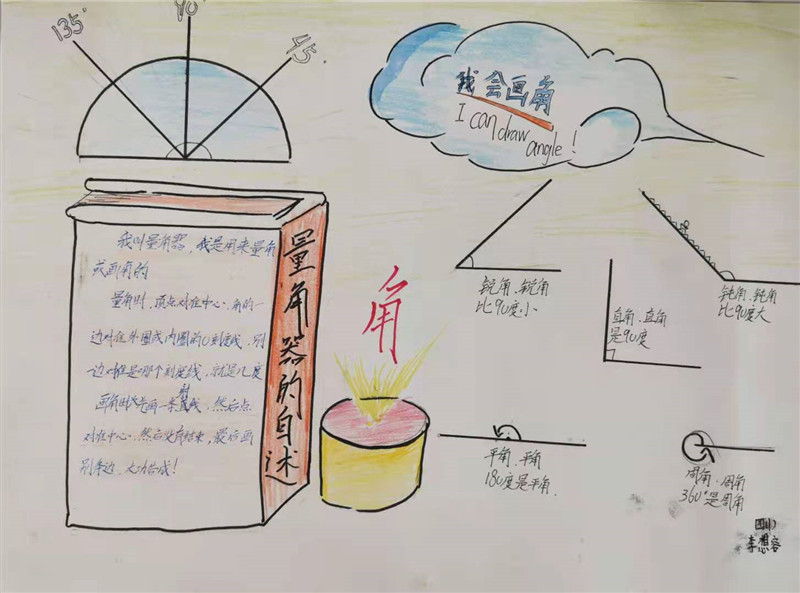 135°
90°
45°
我会画角
I can draw
angle!
我叫量角器，我是用来量角
或画角的
量角时，顶点对准中心，角的一
边对准外圈或内圈的0刻度线，别
一边对准是哪个刻度线，就是几度
画角时先画一条射线，然后点
对准中心，然后没有结束，最后画
别条边，大功告成！
量角器的自述
角
锐角、锐角
比90度小
直角、直角
是90度
钝角、钝角
比90度大
平角、平角
180度是平角、
周角、周角
360°是周角
四(1)
李想容